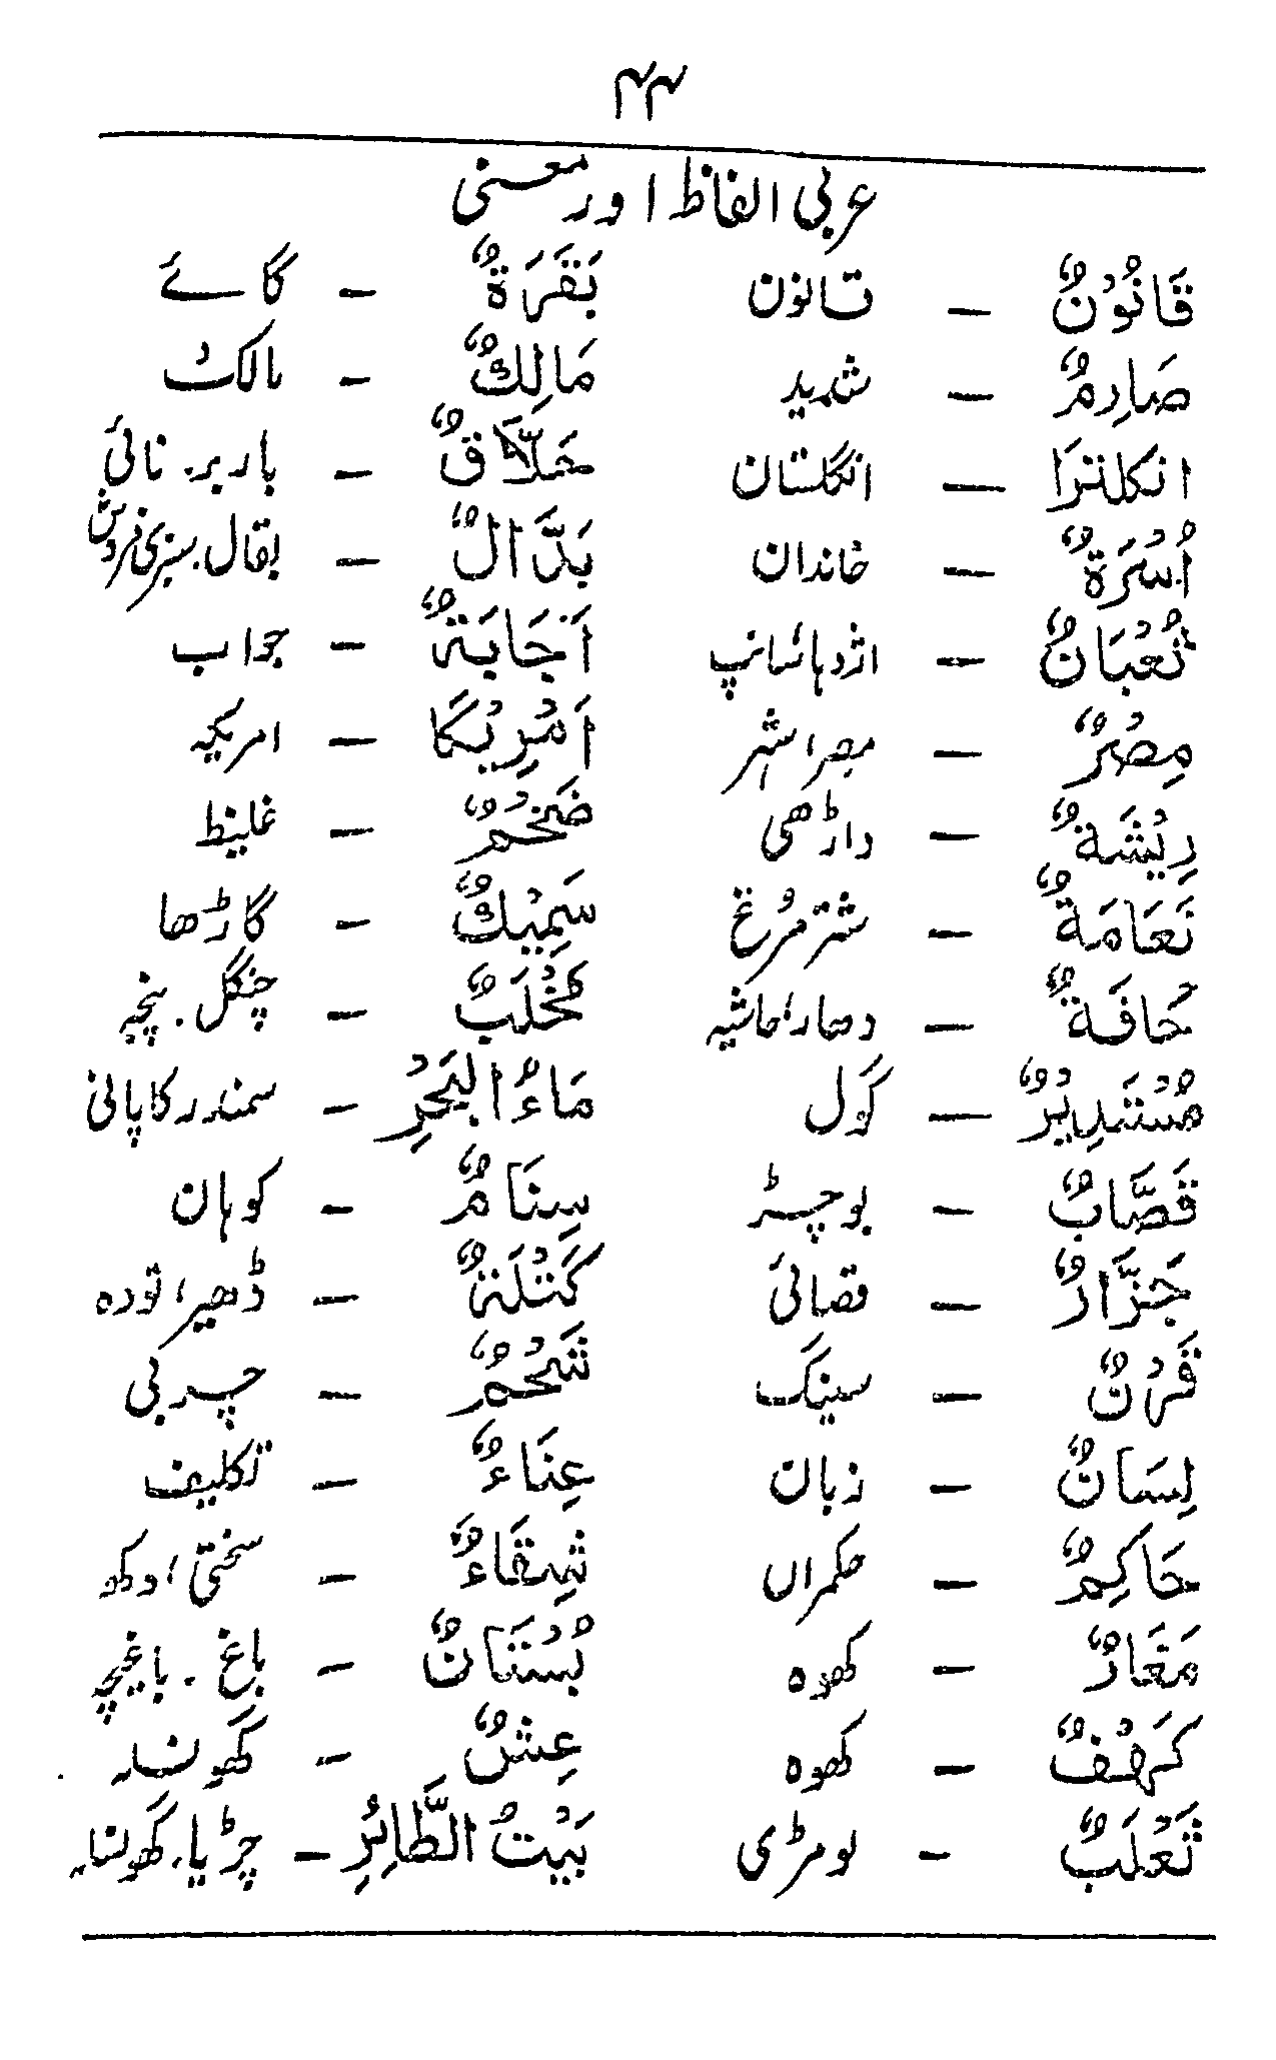 ۴۴
عربی الفاظ اور معنی
قَانُوْنٌ — قانون بَقَرَةٌ - گائے
صَارِمٌ — شدید مَالِكٌ - مالک
انکلترَا — انگلستان حَلَّاقٌ - باربر۔ نائی
اُسْرَةٌ — خاندان بَدَّالٌ - بقال۔ سبزی فروش
ثُعْبَانٌ — اژدہا سانپ اَجَابَةٌ - جواب
مِصْرٌ — مصر، شہر اَمْرِيْكَا - امریکہ
رِيْشَةٌ — داڑھی ضَخْمٌ - غلیظ
نَعَامَةٌ — شتر مُرغ سَمِيْكٌ - گاڑھا
حَافَةٌ — دھار، حاشیہ مَخْلَبٌ - چنگل۔ پنجہ
مُسْتَدِيْرٌ — گول مَاءُ الْبَحْرِ - سمندر کا پانی
قَصَّابٌ — بوچڑ سِنَامٌ - کوہان
جَزَّارٌ — قصائی كَتْلَةٌ - ڈھیر، تودہ
قَرْنٌ — سینگ شَحْمٌ - چربی
لِسَانٌ — زبان عِنَاءٌ - تکلیف
حَاكِمٌ — حکمراں شِقَاءٌ - سختی، دکھ
مَغَارٌ — کھوہ بُسْتَانٌ - باغ۔ باغیچہ
كَهْفٌ — کھوہ عِشٌ - گھونسلہ
ثَعْلَبٌ - لومڑی بَيْتُ الطَّائِرِ - چڑیا۔ گھونسلہ